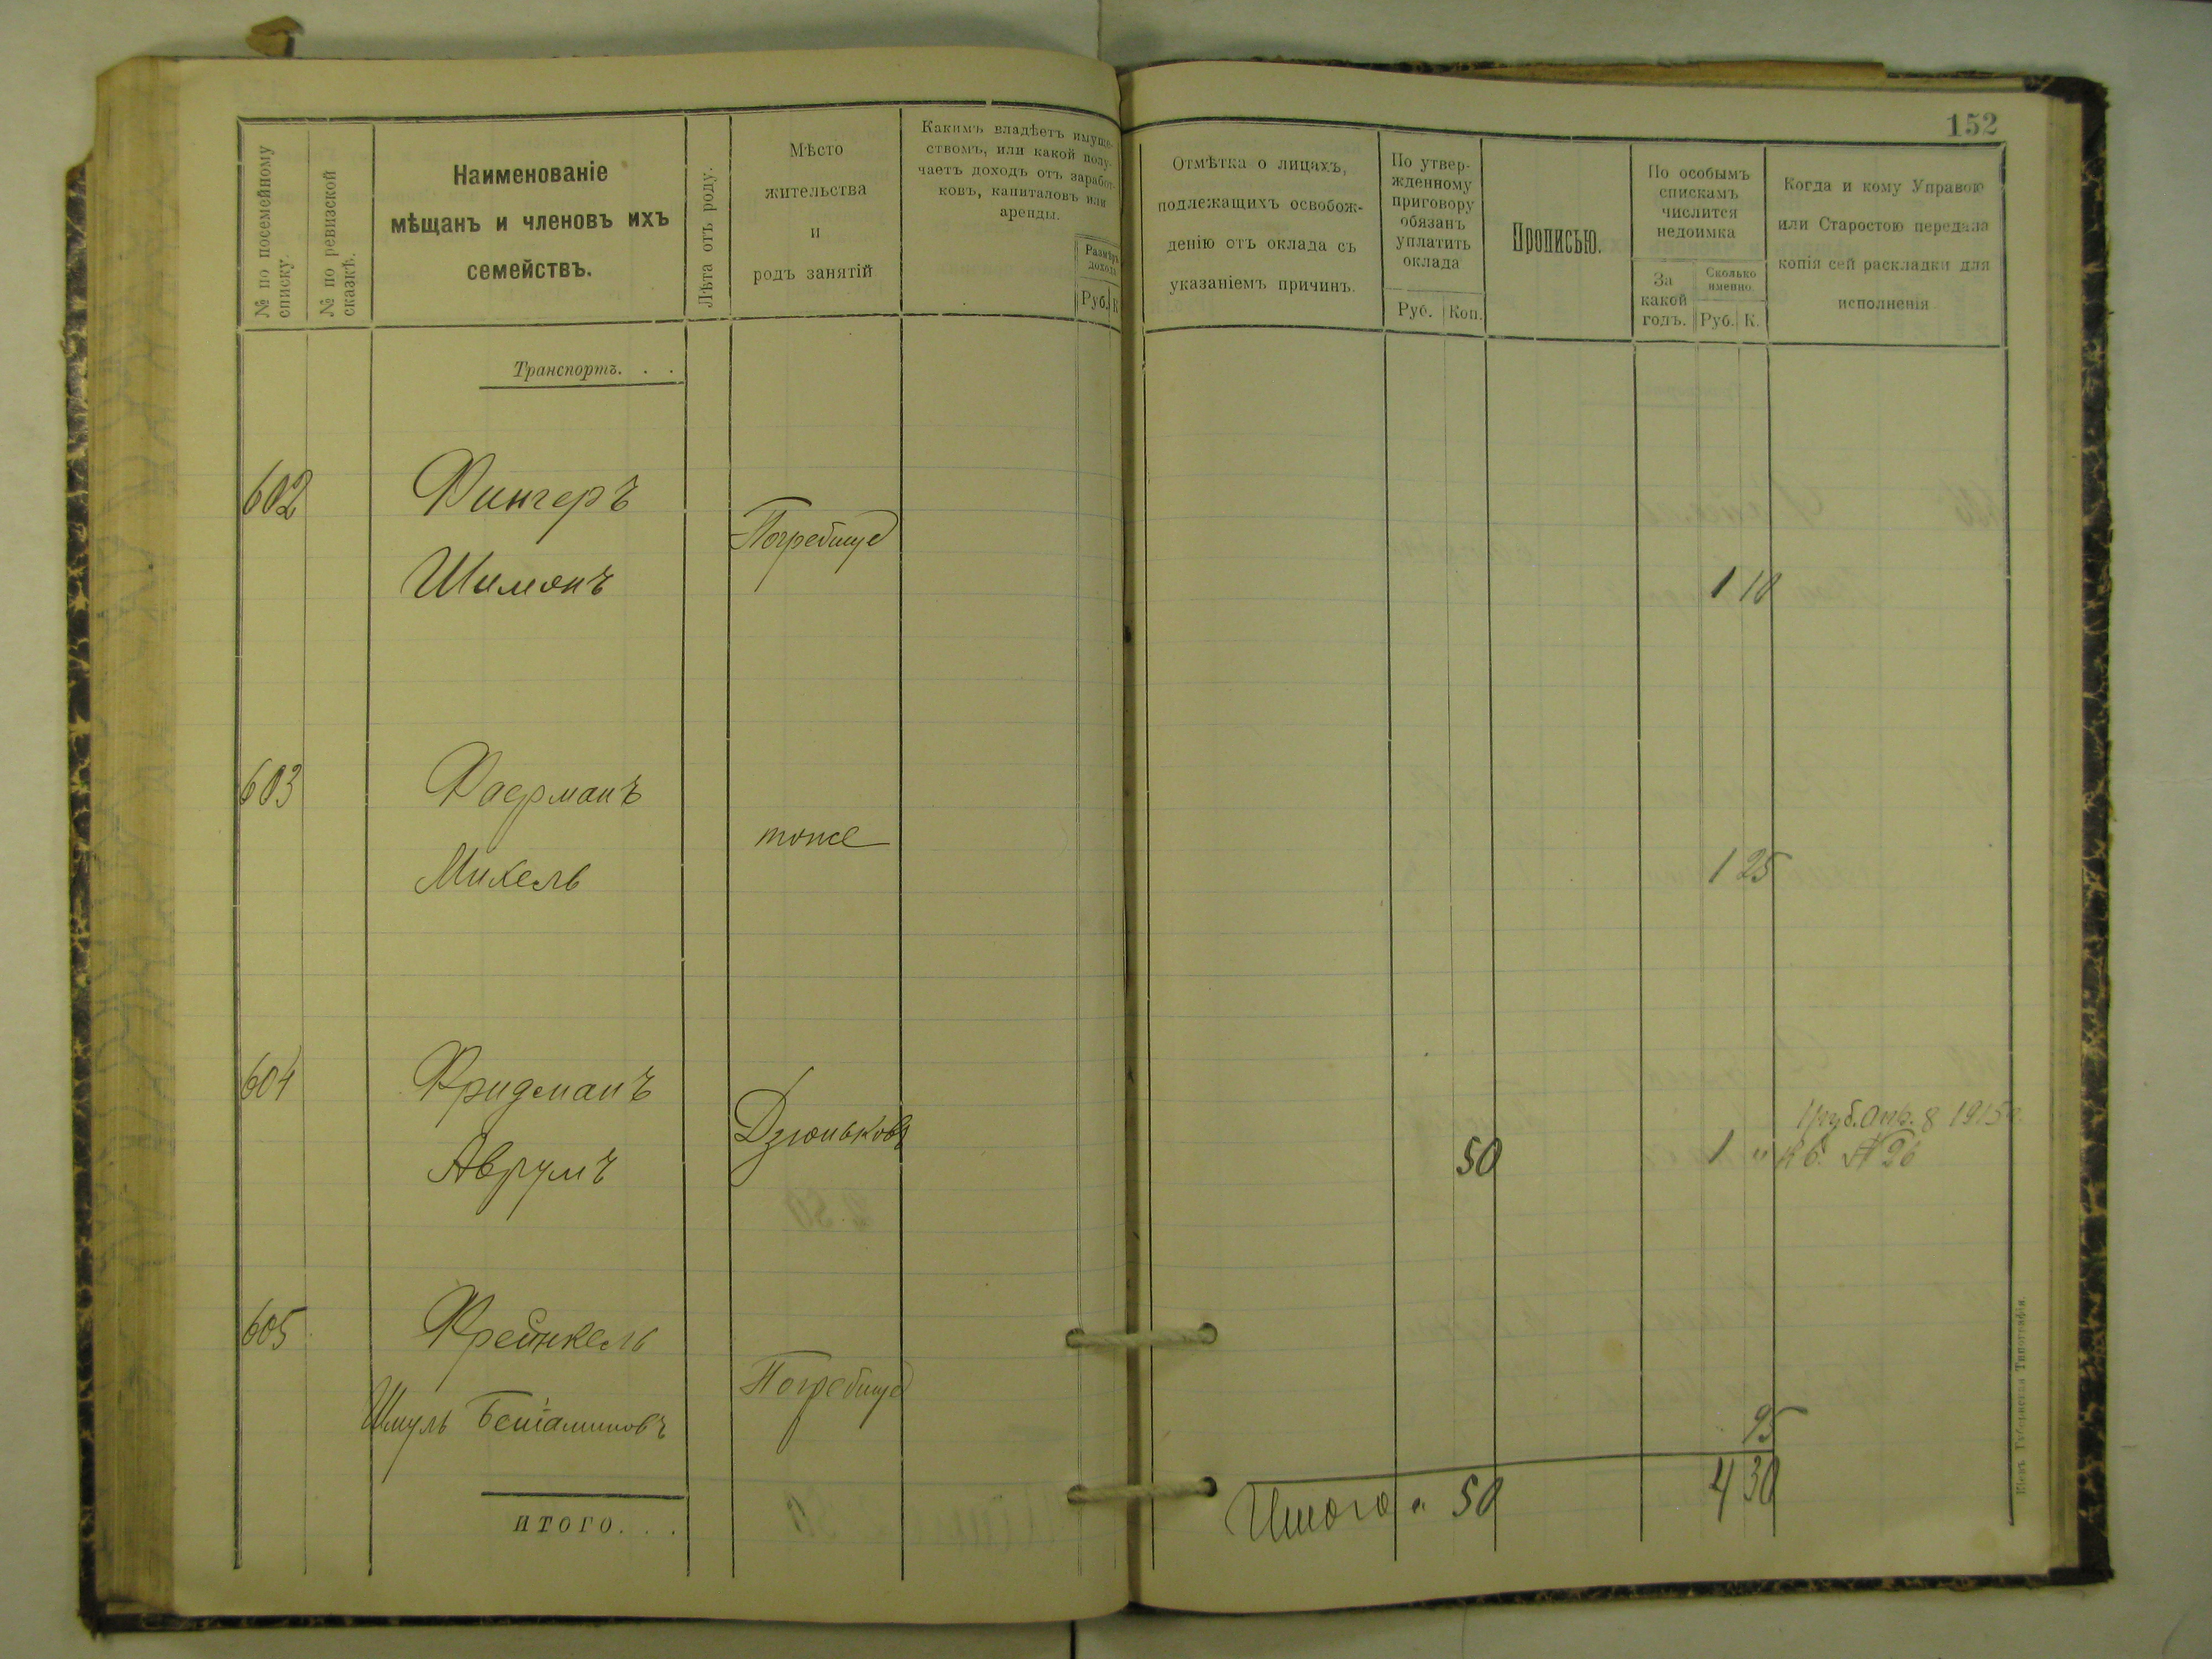 152
№ по посемейному списку.
№ по ревизской сказкѣ.
Наименованіе
мѣщанъ и членовъ ихъ
семействъ.
Лѣта отъ роду.
Мѣсто
жительства
и
родъ занятій
Какимъ владѣетъ имуще-
ствомъ, или какой полу-
чаетъ доходъ отъ заработ-
ковъ, капиталовъ или
аренды.
Размѣръ
дохода
Руб. К
Отмѣтка о лицахъ,
подлежащихъ освобож-
денію отъ оклада съ
указаніемъ причинъ.
По утвер-
жденному
приговору
обязанъ
уплатить
оклада
Руб. Коп.
Прописью.
По особымъ
спискамъ
числится
недоимка
За
какой
годъ.
Сколько
именно.
Руб. К.
Когда и кому Управою
или Старостою передана
копія сей раскладки для
исполненія
Транспортъ. . .
602 Фингеръ
Погребище
Шимонъ 1 10
603 Фаерманъ
тоже
Михель 1 25
604 Фридманъ
Дзюньковъ 1 руб. 8 1915
Аврумъ 50 1 " кб. № 26
605 Фрейнкель
Погребище
Шмуль Беніаминовъ 95
Итого " 50 4 30
ИТОГО. . .
Кіевъ. Губернская Типографія.